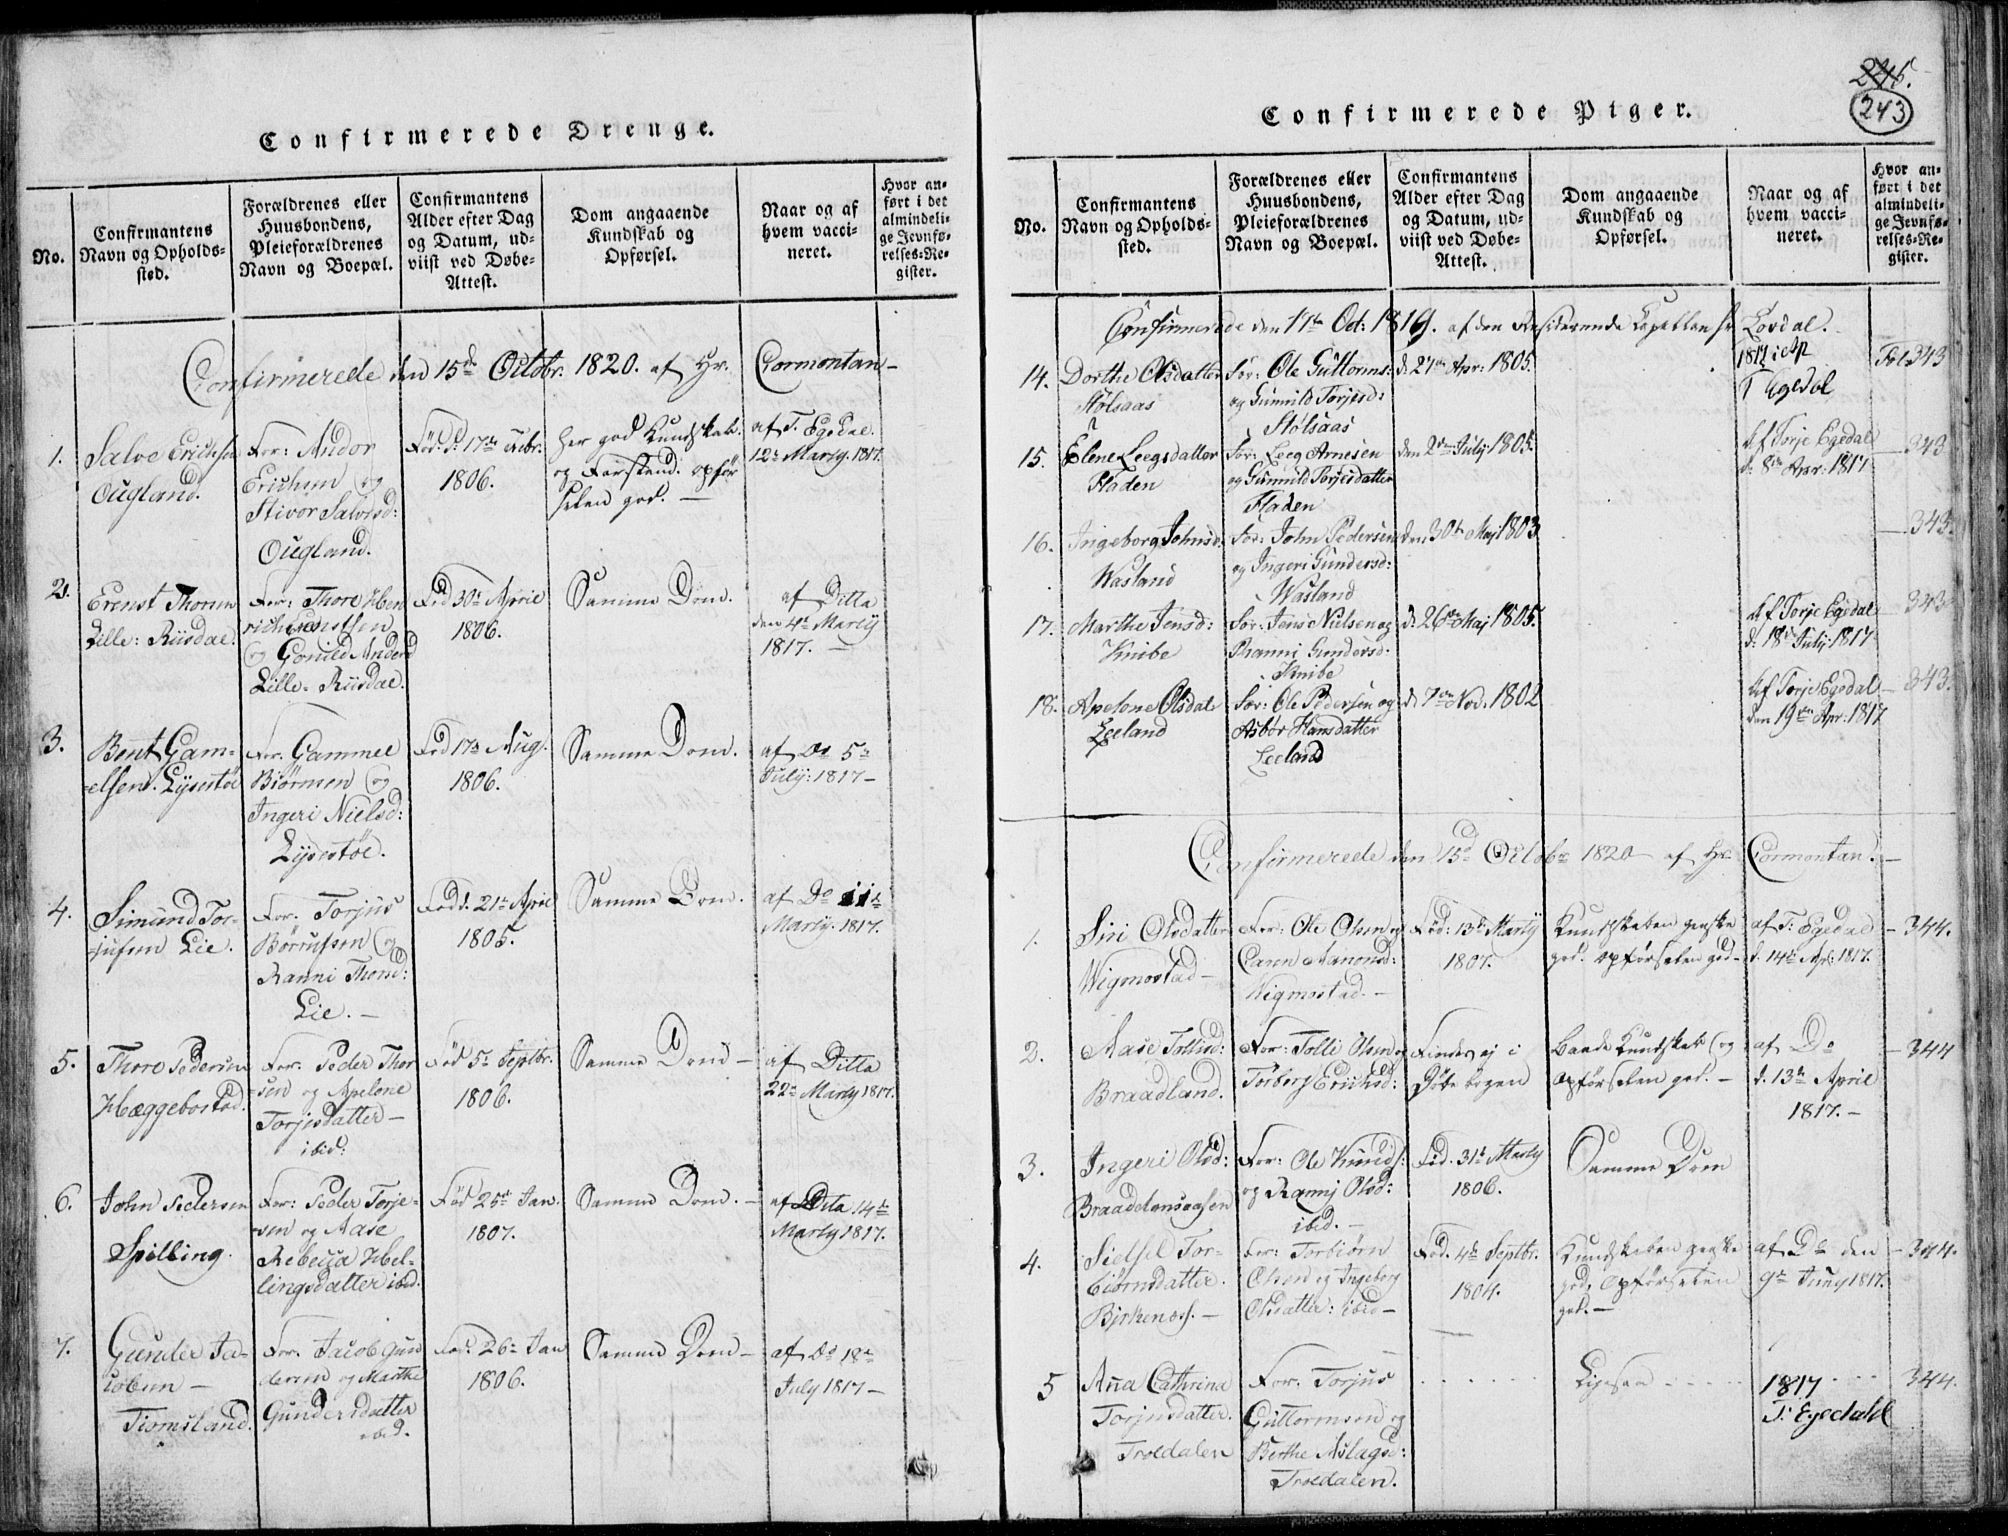 Confirmerede Drenge.
No.
Confirmantens
Navn og Opholds-
sted.
Forældrenes eller
Huusbondens,
Pleieforældrenes
Navn og Boepæl.
Confirmantens
Alder efter Dag
og Datum, ud-
viist ved Døbe-
Attest.
Dom angaaende
Kundskab og
Opførsel.
Naar og af
hvem vacci-
neret.
Hvor an-
ført i det
almindeli-
ge Jevnfø-
relses-Re-
gister.
Confirmerede den 15de Octobr. 1820. af Hr. Cormontan -
1.
Salve Erichsen
Ougland.
For: Andor
Erichsen og
Stivor Salvesd:
Ougland.
Föd d: 17de
1806.
god Kundskab.
og Forstand. opför
selen god. -
af T. Egedal.
12te Martij. 1817.
2.
Ernst Thorsen
Lille: Riisdal.
For: Thore Hen
richsen
og Gonild Andersd
Lille-Riisdal.
Föd 30te April
1806.
Samme Dom.
af Ditto
den 4de Martij
1817. -
3.
Bent Gam-
elsen. Lysestöl
For. Gammel
Biörnsen og
Ingeri Nielsd:
Lysestöl.
Föd 17de Aug.
1806.
Samme Dom.
af Do 5te
July: 1817 -
4.
Simund Tor-
jusen Lie.
For. Torjus
Börrufsen og
Ranni Thorsd:
Lie. -
Född. 21de April
1805.
Samme Dom.
af Do 11te
Martij. 1817.
5.
Thore Pedersen
Hæggebostad.
For. Peder Thor
sen og Apelone
Torjesdatter -
ibid:
Föd 5te Septbr.
1806.
Samme Dom -
af Ditto
22de Martij 1817.
6.
John Pedersen
Spilling.
For: Peder Torje-
sen og Aase
Rebecca Hel-
lingsdatter ibid.
Föd 25de Jan.
1807.
Samme Dom. -
af Dito 14de
Martij 1817.
7.
Gunder Ja-
cobsen -
Tiomsland.
For. Jacob Gun
dersen og Marthe
Gundersdatter
ibid.
Föd. 26de Jan
1806.
Samme Dom -
af Do 18de
July 1817 -
245.
243
Confirmerede Piger.
No.
Confirmantens
Navn og Opholds-
sted.
Forældrenes eller
Huusbondens,
Pleieforældrenes
Navn og Boepæl.
Confirmantens
Alder efter Dag
og Datum, ud-
viist ved Døbe-
Attest.
Dom angaaende
Kundskab og
Opførsel.
Naar og af
hvem vacci-
neret.
Hvor an-
ført i det
almindeli-
ge Jevnfø-
relses-Re-
gister.
Confirmerede den 17de Oct: 1819. af den Residerende Capellan Hr Lovdal.
14.
Dorthe Olsdatter
Stölsaas
For: Ole Guttorms:
og Gunnild Torjesd:
Stölsaas
d: 27de Apr: 1805.
T Egedal
343
15.
Elene Leegsdatter
Fladen
For: Leeg Arnesen
og Gunnild Torjesdatter
Fladen
den 2den July 1805.
Af Torje Egedal
d: 8de Apr: 1817
343
16.
Ingeborg Johnsd:
Wasland
For: John Pedersen
og Ingeri Gundersd:
Wasland
den 30te Maj 1803
343.
17.
Marthe Jensd:
Knibe
For: Jens Nielsen og
Ranni Gundersd:
Knibe
d: 26de Maj 1805.
Af Torje Egedal
d: 18de July 1817
343
18.
Apelone Olsdat:
Leeland
For: Ole Pedersen og
Asbör Hansdatter
Leeland
d: 7de Nov. 1802
Af Torje Egedal
den 19de Apr: 1817
343.
Confirmerede den 15de Octobr 1820 af Hr Cormontan. -
1.
Siri Olsdatter
Wigmostad -
For: Ole Olsen og
Caren Aanonsd:
Wigmostad. -
Föd: 13de Martij
1807.
Kundskaben ganske
god. opförselen god -
af T: Egedal
d. 14de Apr: 1817.
344.
2.
Aase Tollisd:
Braadland.
For: Tolli Olsen og
Torborg Erichsd:
Findes ej i
Döbe bogen
Baade Kundskab og
Opförselen god. -
af Do
d. 13de April
1817. -
344
3.
Ingeri Olsd:
Braadlandsaasen
For: Ole Knuds:
og Ranni Olsd:
ibid. -
Föd. 31te Martij
1806.
Samme Dom
4.
Sidsel Tor-
biörnsdatter.
Birkenæs. -
For: Torbiörn
Olsen og Ingeborg
Olsdatter: ibid -
Föd. 4de Septbr.
1804.
Kundskaben ganske
god. Opförselen
god. -
af Do den
9de Juny 1817.
344.
5
Ana Cathrina
Torjusdatter.
Troldalen
For. Torjus
Guttormsen og
Berthe Aslagsd:
Troldalen.
Ligesaa
1817
T. Egedahl
344.